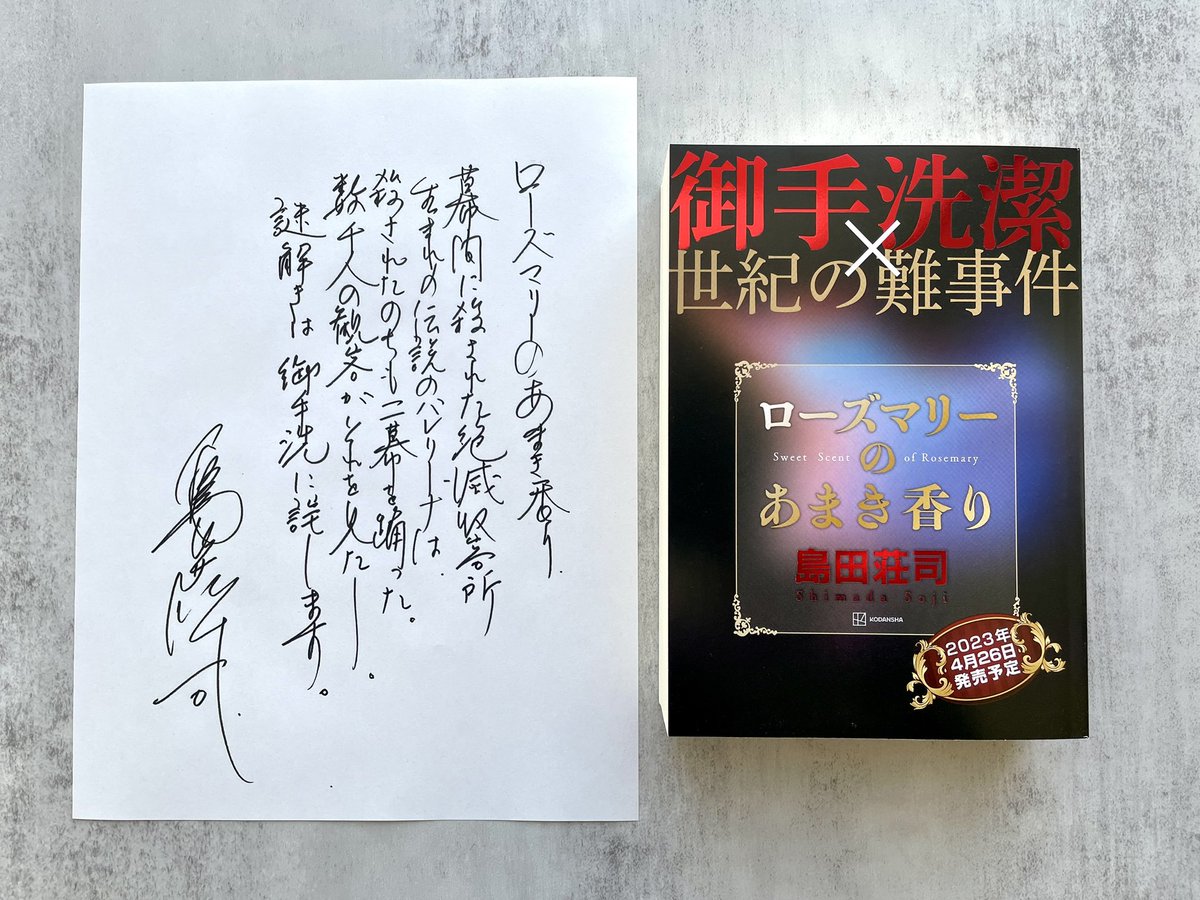 ローズマリーのあまき香り
幕間に殺された絶滅収容所
生まれの伝説のバレリーナは、
殺されたのちも二幕を踊った。
数千人の観客がそれを見た――。
謎解きは御手洗に託します。
島田荘司
御手洗潔
×
世紀の難事件
ローズマリー
Sweet Scent of Rosemary
の
あまき香り
島田荘司
Shimada Soji
KODANSHA
2023年
4月26日
発売予定